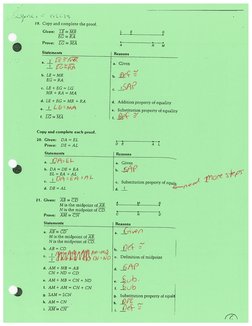 19. Copy and complete the proof.
Given: LE ≅ MR
EG ≅ RA
Prove: LG ≅ MA
Statements Reasons
a. LE ≅ MR
EG ≅ RA a. Given
b. LE = MR
EG = RA b. Def ≅
c. LE + EG = LG
MR + RA = MA c. SAP
d. LE + EG = MR + RA d. Addition property of equality
e. LG = MA e. Substitution property of equality
f. LG ≅ MA f. Def ≅
Copy and complete each proof.
20. Given: DA = EL
Prove: DE = AL
Statements Reasons
a. DA = EL a. Given
b. DA = DE + EA
EL = EA + AL b. SAP
c. DE + EA = EA + AL c. Substitution property of equality
d. DE = AL
need more steps
21. Given: AB ≅ CD
M is the midpoint of AB.
N is the midpoint of CD.
Prove: AM ≅ CN
Statements Reasons
a. AB ≅ CD
M is the midpoint of AB.
N is the midpoint of CD. a. Given
b. AB = CD b. Def ≅
c. Definition of midpoint
d. AM + MB = AB
CN + ND = CD d. SAP
e. AM + MB = CN + ND e. Sub.
f. AM + AM = CN + CN f. Sub.
g. 2AM = 2CN g. Substitution property of equality
h. AM = CN
i. AM ≅ CN i. Def ≅